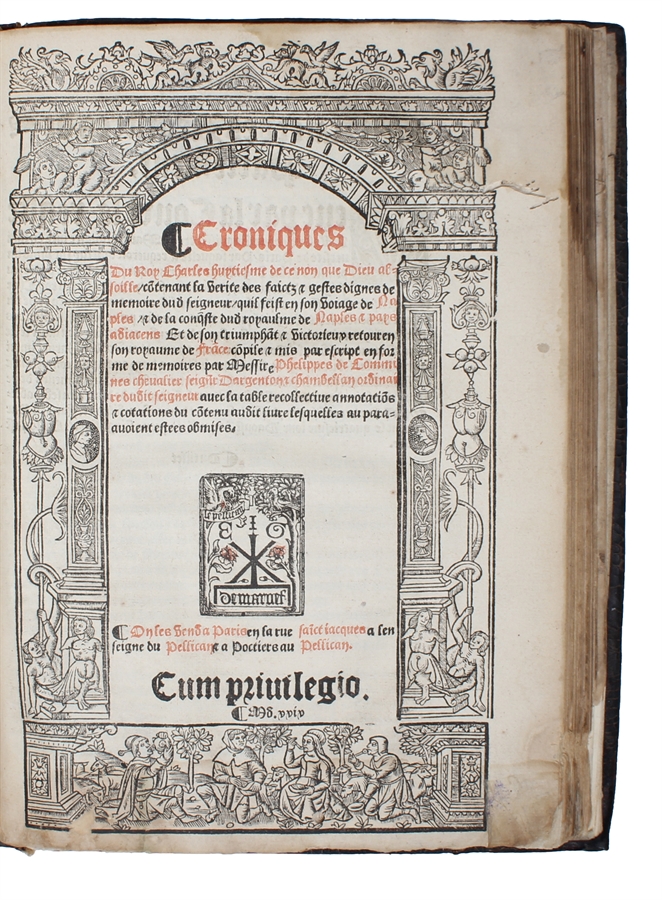 ¶Croniques
Du Roy Charles huytiesme de ce non que Dieu al-
soille/cõtenant la verite des faictz ⁊ gestes dignes de
memoire dud seigneur/quil feist en son voiage de Na
ples /⁊ de la cõqste dud royaulme de Naples ⁊ pays
adiacens Et de son triumphãt ⁊ victorieux retour en
son royaume de frãce/cõpile ⁊ mis par escript en for
me de memoires par Messire Phelippes de Commi
nes chevalier seigñr Dargenton ⁊ chambellan ordinai
re dudit seigneur avec la table recollective annotatiõs
⁊ cotations du cõtenu audit livre lesquelles au para-
avoient estees obmises.
le pellican
E I G
de marnef
¶ On les vend a Paris en la rue saĩct iacques a len
seigne du Pellican ⁊ a Poctiers au Pellican.
Cum privilegio.
¶ Md. xxix